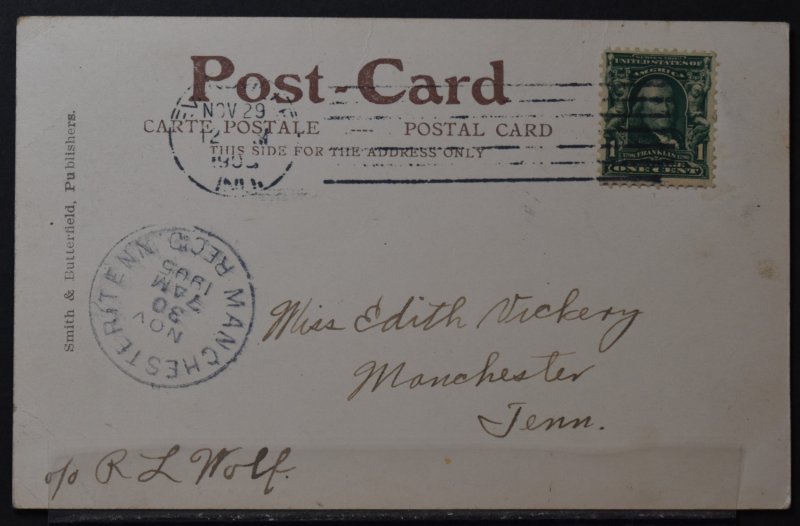 Post-Card
CARTE POSTALE ---- POSTAL CARD
THIS SIDE FOR THE ADDRESS ONLY
NOV 29
12
1905
IND.
UNITED STATES OF
AMERICA
FRANKLIN
1 1
ONE CENT
Smith & Butterfield, Publishers.
MANCHESTER, TENN. REC'D
NOV
30
7 AM
1905
Miss Edith Vickery
Manchester
Tenn.
c/o R L Wolf.